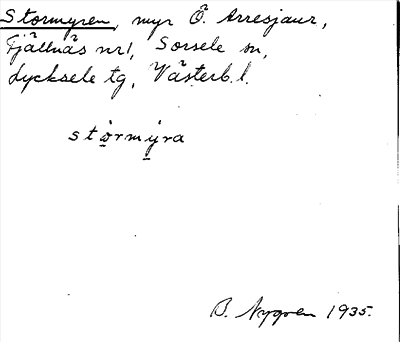 Stormyren, myr Ö. Arresjaur,
Fjällnäs nr1, Sorsele sn,
Lycksele tg, Västerb. l.
stòrmýra
B. Nygren 1935.